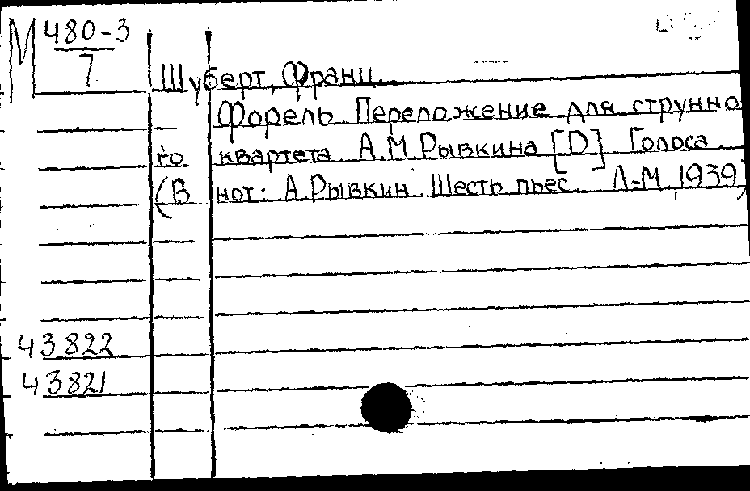 М 480-3
7
Шуберт, Франц.
Форель. Переложение для струнно
го квартета А.М.Рывкина [D]. Голоса.
(В нот: А.Рывкин. Шесть пьес. Л-М, 1939)
43822
43821